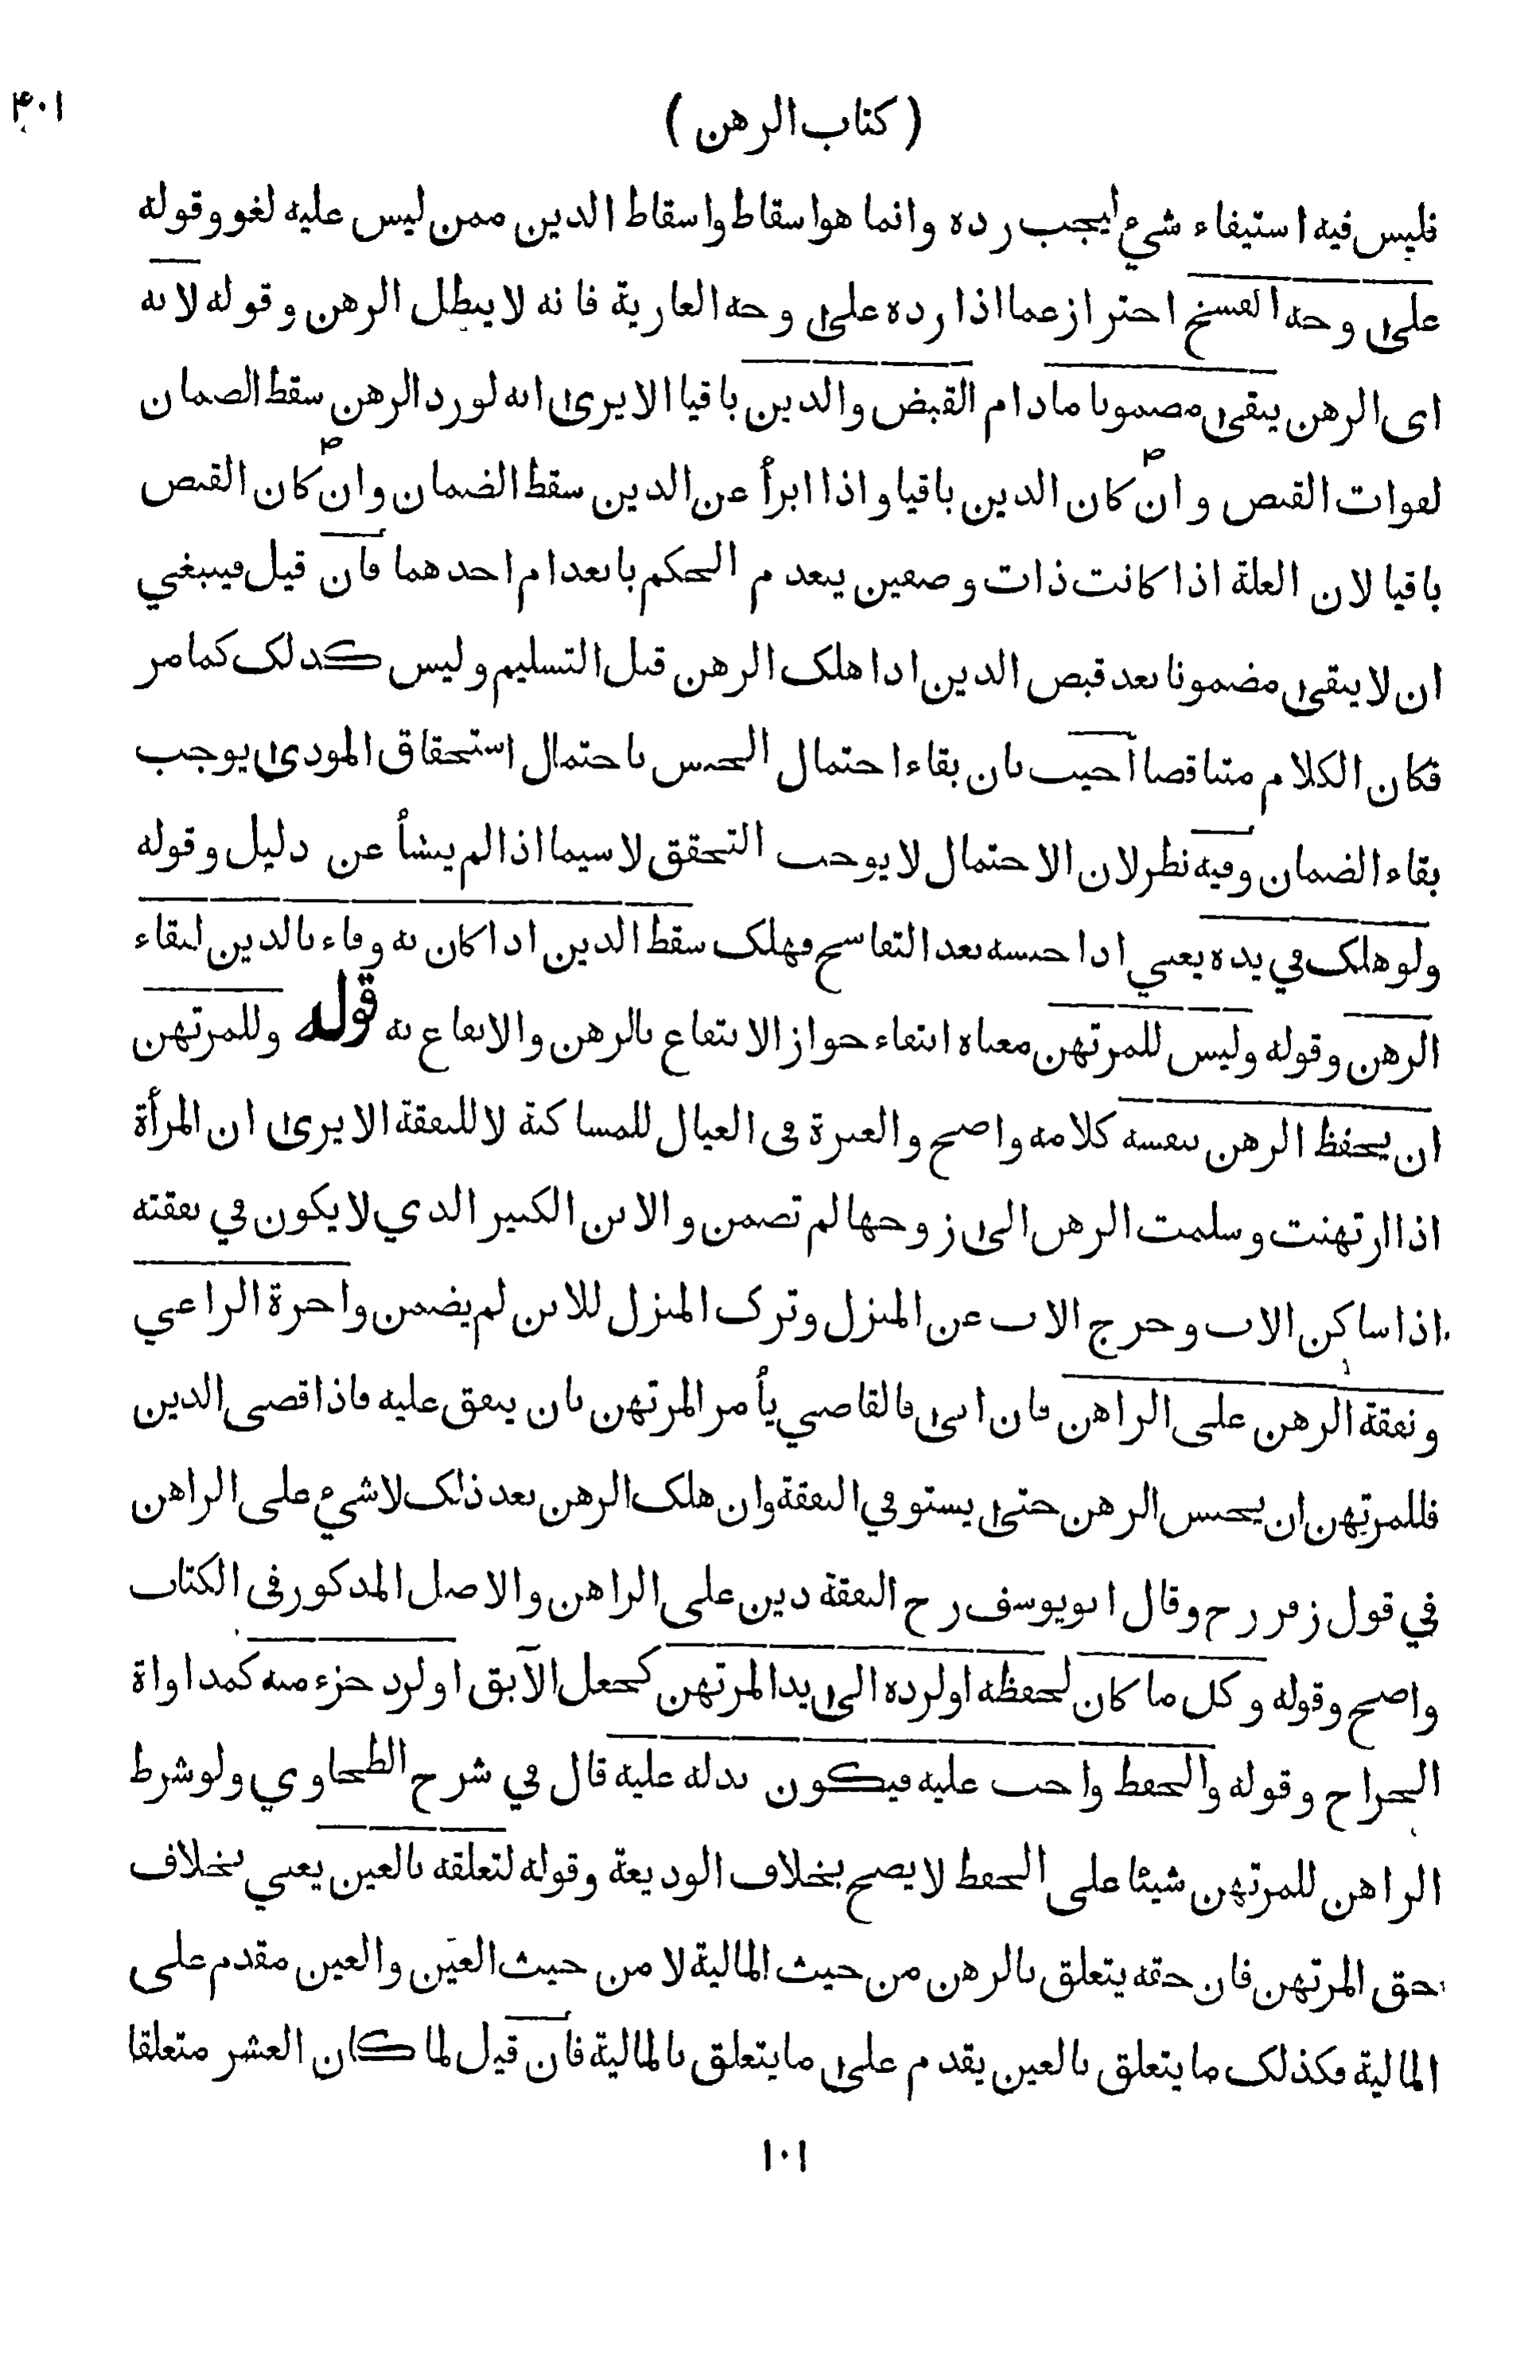 ( كتاب الرهن )
۴۰۱
فليس فيه استيفاء شيء ليجب رده وانما هو اسقاط واسقاط الدين ممن ليس عليه لغو وقوله
على وجه الفسخ احتراز عما اذا رده على وجه العارية فانه لا يبطل الرهن وقوله لانه
اى الرهن يبقى مضمونا مادام القبض والدين باقيا الا يرى انه لو رد الرهن سقط الضمان
لفوات القبض وان كان الدين باقيا واذا ابرأ عن الدين سقط الضمان وان كان القبض
باقيا لان العلة اذا كانت ذات وصفين ينعدم الحكم بانعدام احدهما فان قيل فينبغي
ان لا يبقى مضمونا بعد قبض الدين اذا هلك الرهن قبل التسليم وليس كذلك كما مر
فكان الكلام متناقضا أجيب بان بقاء احتمال الحبس باحتمال استحقاق المودى يوجب
بقاء الضمان وفيه نظر لان الاحتمال لا يوجب التحقق لا سيما اذا لم ينشأ عن دليل وقوله
ولو هلك في يده يعني اذا حبسه بعد التفاسخ فهلك سقط الدين اذا كان به وفاء بالدين لبقاء
الرهن وقوله وليس للمرتهن معناه انتفاء جواز الانتفاع بالرهن والانتفاع به قوله وللمرتهن
ان يحفظ الرهن بنفسه كلامه واضح والعبرة فى العيال للمساكنة لا للنفقة الا يرى ان المرأة
اذا ارتهنت وسلمت الرهن الى زوجها لم تضمن والابن الكبير الذي لا يكون في نفقته
اذا ساكن الاب وخرج الاب عن المنزل وترك المنزل للابن لم يضمن واجرة الراعي
ونفقة الرهن على الراهن فان ابى فالقاضي يأمر المرتهن بان ينفق عليه فاذا قضى الدين
فللمرتهن ان يحبس الرهن حتى يستوفي النفقة وان هلك الرهن بعد ذلك لا شيء على الراهن
في قول زفر رح وقال ابو يوسف رح النفقة دين على الراهن والاصل المذكور فى الكتاب
واضح وقوله وكل ما كان لحفظه او لرده الى يد المرتهن كجعل الآبق او لرد جزء منه كمداواة
الجراح وقوله والحفظ واجب عليه فيكون بدله عليه قال في شرح الطحاوي ولو شرط
الراهن للمرتهن شيئا على الحفظ لا يصح بخلاف الوديعة وقوله لتعلقه بالعين يعني بخلاف
حق المرتهن فان حقه يتعلق بالرهن من حيث المالية لا من حيث العين والعين مقدم على
المالية فكذلك ما يتعلق بالعين يقدم على ما يتعلق بالمالية فان قيل لما كان العشر متعلقا
١٠١